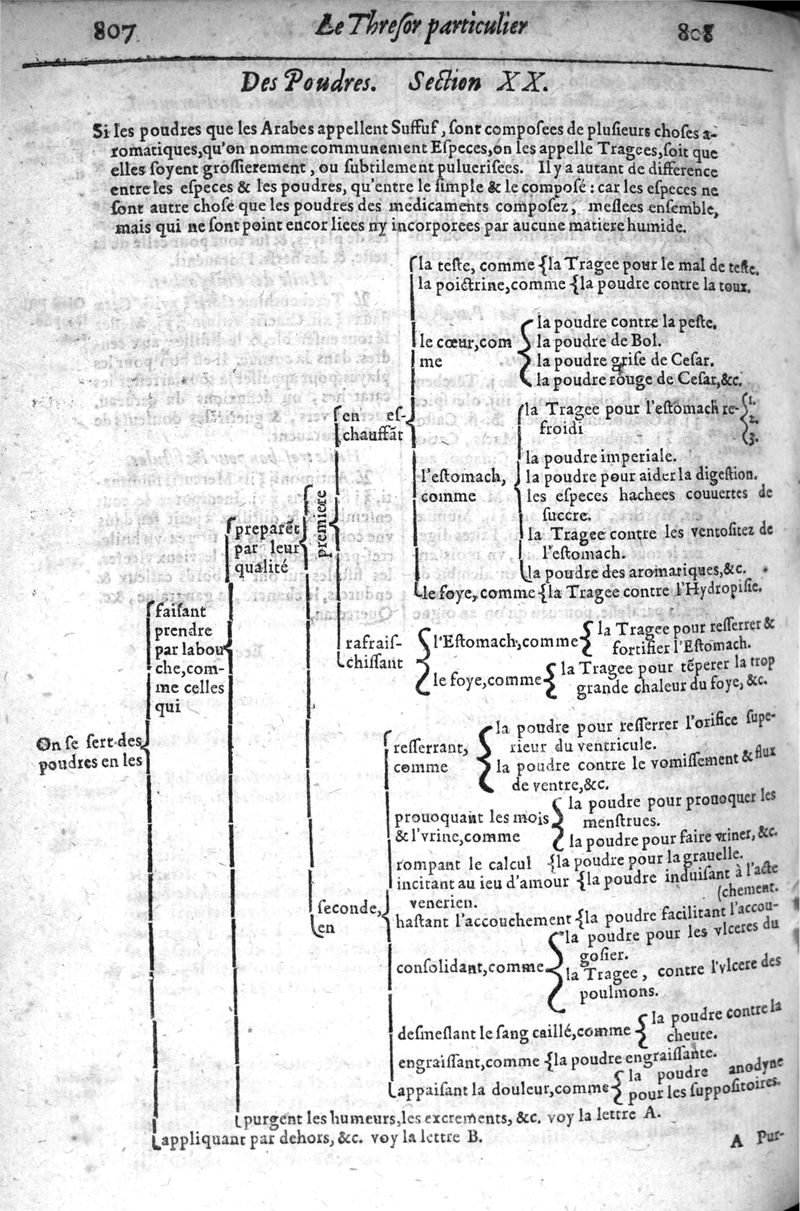 807 Le Thresor particulier 808
Des Poudres. Section XX.
Si les poudres que les Arabes appellent Suffuf, sont composees de plusieurs choses a-
romatiques, qu'on nomme communement Especes, on les appelle Tragees, soit que
elles soyent grossierement, ou subtilement puluerisees. Il y a autant de difference
entre les especes & les poudres, qu'entre le simple & le composé : car les especes ne
sont autre chose que les poudres des medicaments composez, meslees ensemble,
mais qui ne sont point encor liees ny incorporees par aucune matiere humide.
On se sert des
poudres en les
faisant
prendre
par la bou
che, com-
me celles
qui
preparēt
par leur
qualité
premiere
en es-
chauffāt
la teste, comme {la Tragee pour le mal de teste.
la poictrine, comme {la poudre contre la toux.
le cœur, com
me
la poudre contre la peste.
la poudre de Bol.
la poudre grise de Cesar.
la poudre rouge de Cesar, &c.
l'estomach,
comme
la Tragee pour l'estomach re-
froidi
1.
2.
3.
la poudre imperiale.
la poudre pour aider la digestion.
les especes hachees couuertes de
succre.
la Tragee contre les ventositez de
l'estomach.
la poudre des aromatiques, &c.
le foye, comme {la Tragee contre l'Hydropisie.
rafrais-
chissant
l'Estomach, comme
la Tragee pour resserrer &
fortifier l'Estomach.
le foye, comme
la Tragee pour tēperer la trop
grande chaleur du foye, &c.
seconde,
en
resserrant,
comme
la poudre pour resserrer l'orifice supe-
rieur du ventricule.
la poudre contre le vomissement & flux
de ventre, &c.
prouoquant les mois
& l'vrine, comme
la poudre pour prouoquer les
menstrues.
la poudre pour faire vriner, &c.
rompant le calcul {la poudre pour la grauelle.
incitant au ieu d'amour {la poudre induisant à l'acte
venerien.
hastant l'accouchement {la poudre facilitant l'accou-
(chement.
consolidant, comme
la poudre pour les vlceres du
gosier.
la Tragee, contre l'vlcere des
poulmons.
desmeslant le sang caillé, comme
la poudre contre la
cheute.
engraissant, comme {la poudre engraissante.
appaisant la douleur, comme
la poudre anodyne
pour les suppositoires.
purgent les humeurs, les excrements, &c. voy la lettre A.
appliquant par dehors, &c. voy la lettre B.
A Pur-